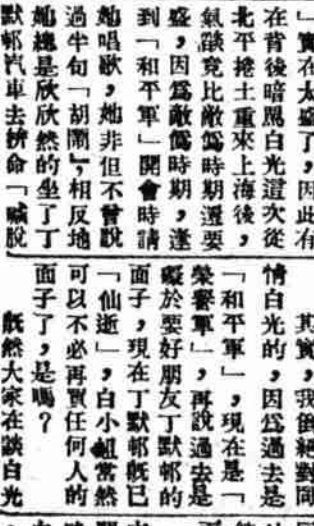 」實在太盛了，因此有
在背後暗罵白光這次從
北平捲土重來上海後，
氣燄竟比敵僞時期還要
盛，因爲敵僞時期，逢
到「和平軍」開會時請
她唱歌，她非但不曾說
過半句「胡鬧」，相反地
她總是欣欣然的坐了丁
默邨汽車去拚命「喊脫
其實，我倒絕對同
情白光的，因爲過去是
「和平軍」，現在是「
榮譽軍」，再說過去是
礙於要好朋友丁默邨的
面子，現在丁默邨旣已
「仙逝」，白小姐當然
可以不必再買任何人的
面子了，是嗎？
旣然大家在談白光